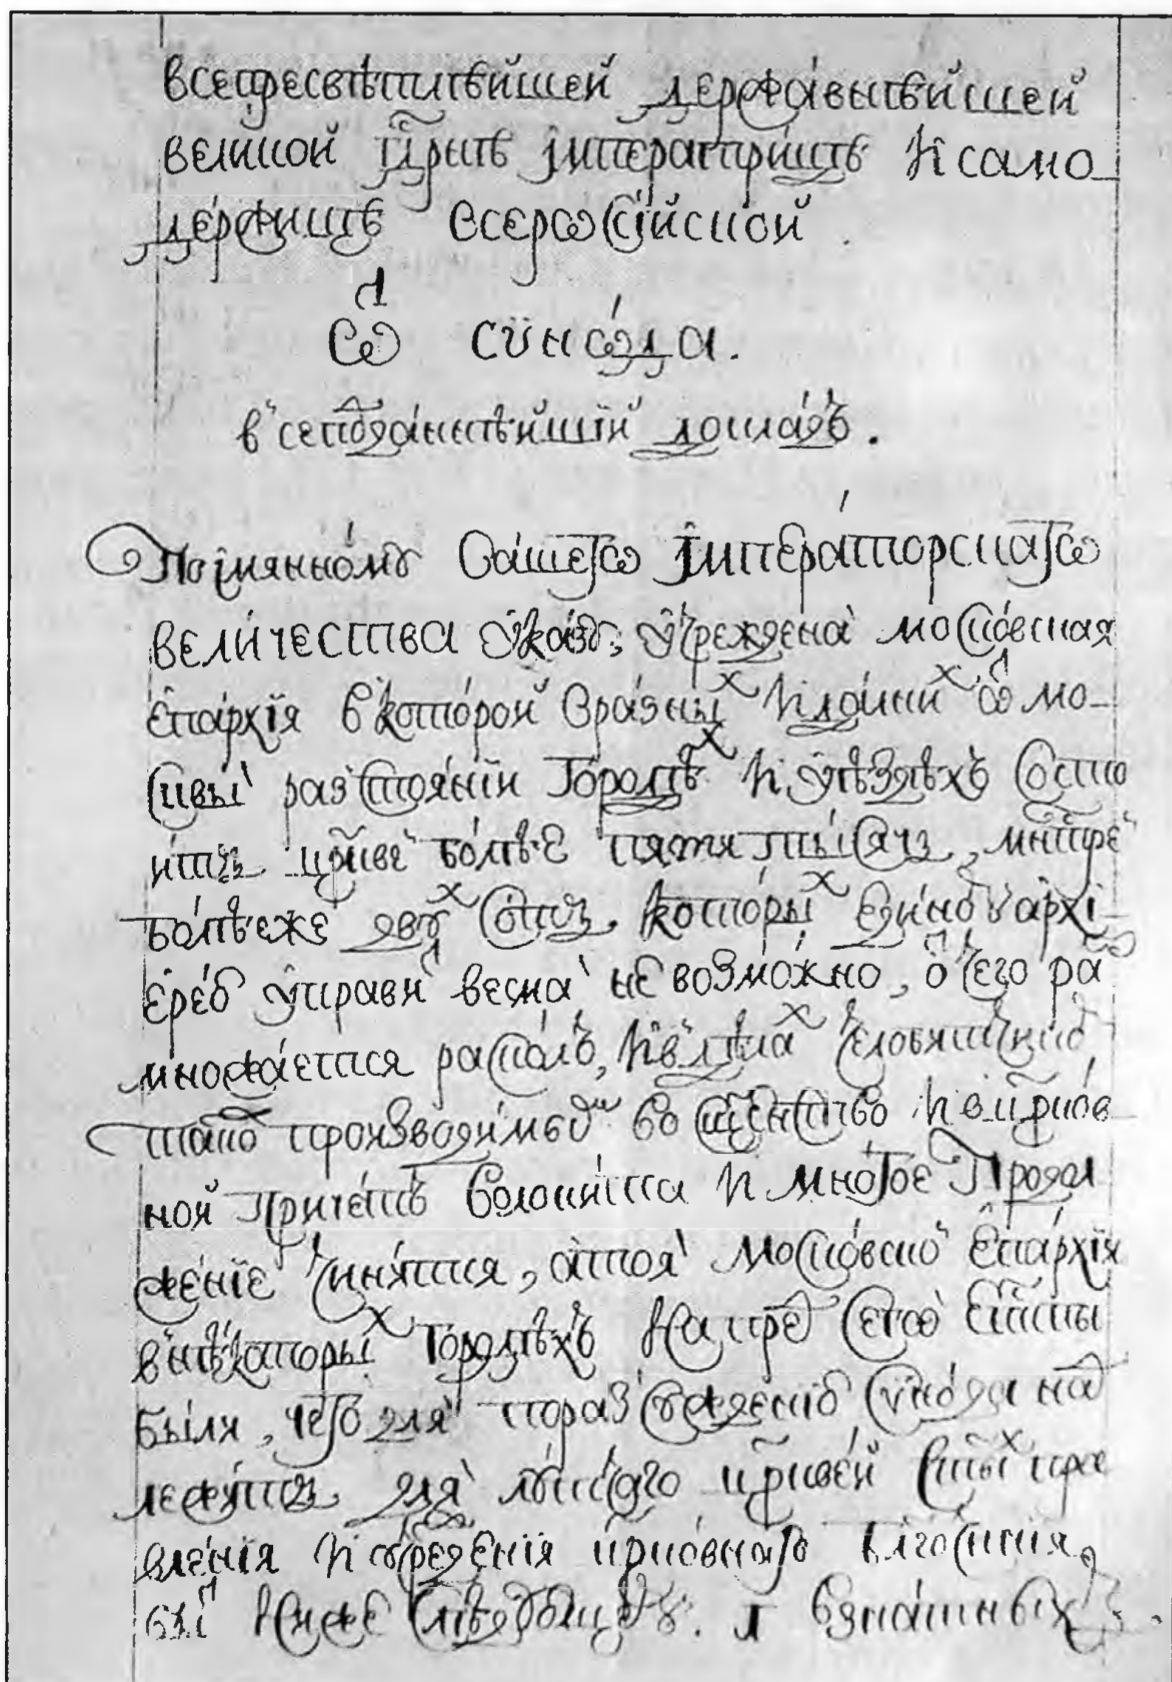 всепресвѣтлѣйшей державнѣйшей
великой гдрнѣ імператрицѣ и само
держицѣ всерѡсійской
ѿ сѵнѡда.
всеподданнѣйшій докладъ.
По імянному вашегѡ імператорскагѡ
величества указу, учреждена московская
епархія в которой вразны х и далних ѿ мо
сквы разстояніи городѣх и уѣздѣхъ состо
итъ црквей болѣе пяти тысячъ, мнтрей
болѣе же двухъ сотъ, которых единому архі
ерею управит весма не возможно, ѿ чего раз
множается расколъ, и в дѣлах человѣческих
тако производимым во сщенство и в црков
ной причетъ волокита и многое Продол
женіе чинятся, а тоя московской епархіи
в нѣкоторых городѣхъ напред сегѡ епскпы
были, чего для по разсужденію сѵнода над
лежитъ для лутчаго црквей стых пра
вленія и учрежденія црковнаго блгочинія
быт ниже слѣдующему. 1 в знатных